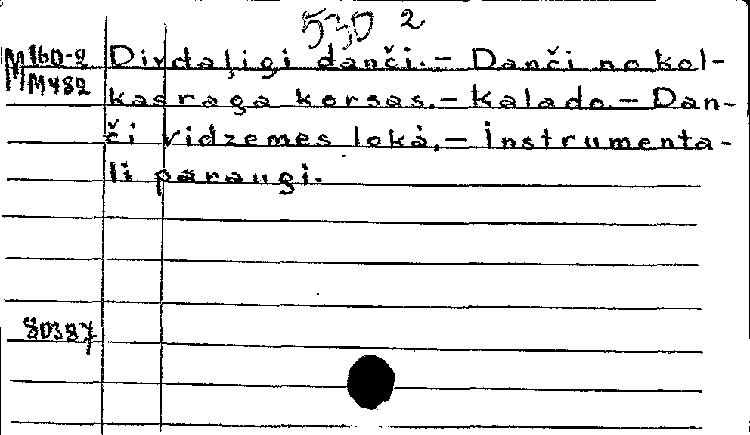 530 2
M 160-2 Divdaļigi danči.- Danči no kol-
M M482 kasraga korsas.- Kalado.- Dan-
či vidzemes lokā.- Instrumenta-
li paraugi.
80387